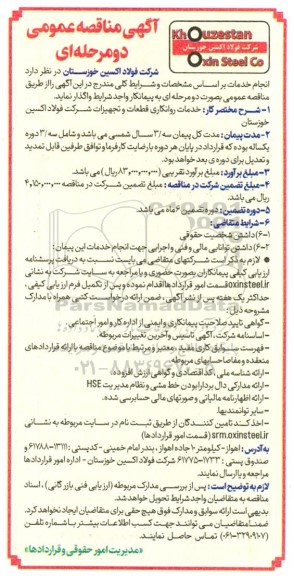 آگهی مناقصه عمومی
دو مرحله‌ای
Khouzestan
شرکت فولاد اکسین خوزستان
Oxin Steel Co
شرکت فولاد اکسین خوزستان در نظر دارد
انجام خدمات بر اساس مشخصات و شرایط کلی مندرج در این آگهی را از طریق
مناقصه عمومی بصورت دو مرحله ای به پیمانکار واجد شرایط واگذار نماید.
۱-شرح مختصر کار: خدمات روانکاری قطعات و تجهیزات شرکت فولاد اکسین
خوزستان
۲-مدت پیمان: مدت کل پیمان سه/۳ سال شمسی می باشد و شامل سه/۳ دوره
یکساله بوده که قرارداد در پایان هر دوره با رضایت کارفرما و توافق طرفین قابل تمدید
و تعدیل برای دوره ی بعد خواهد بود.
۳-مبلغ برآورد: مبلغ برآورد تقریبی (۸۳,۰۰۰,۰۰۰,۰۰۰ ریال) می باشد.
۴-مبلغ تضمین شرکت در مناقصه: مبلغ تضمین شرکت در مناقصه ۴,۱۵۰,۰۰۰,۰۰۰
ریال می باشد.
۵-دوره تضمین: دوره تضمین ۶ ماه می باشد.
۶-شرایط متقاضی:
۶-۱) داشتن شخصیت حقوقی
۶-۲) داشتن توانایی مالی و فنی و اجرایی جهت انجام خدمات این پیمان:
لازم به ذکر است شرکتهای متقاضی می بایست نسبت به دریافت پرسشنامه
ارزیابی کیفی پیمانکاران بصورت حضوری و یا مراجعه به سایت شرکت به نشانی
oxinsteel.ir قسمت امور قراردادها اقدام نموده و پس از تکمیل فرم ارزیابی کیفی،
حداکثر یک هفته پس از نشر آگهی، ضمن ارائه درخواست کتبی همراه با مدارک
مشروحه ذیل:
- گواهی تایید صلاحیت پیمانکاری و ایمنی از اداره کار و امور اجتماعی
- اساسنامه شرکت، آگهی تاسیس و آخرین تغییرات مربوطه.
- فهرست سوابق کاری مفید، معتبر و مرتبط با موضوع مناقصه با ارائه قراردادهای
منعقده و مفاصا حسابهای مربوطه.
- ارائه شناسه ملی، کد اقتصادی و گواهی ارزش افزوده.
- ارائه مدارکی دال بر دارا بودن خط مشی و نظام مدیریت HSE
- ارائه اظهارنامه مالیاتی و صورتهای مالی حسابرسی شده.
- سایر توانمندیها.
- اخذ کد تامین کنندگان از طریق ثبت نام در سایت مربوطه به نشانی
srm.oxinsteel.ir (قسمت امور قراردادها)
به آدرس: اهواز-کیلومتر ۱۰ جاده اهواز، بندر امام خمینی-کدپستی: ۱۳۱۱۱-۶۱۷۸۸ و
صندوق پستی: ۱۷۳۳-۶۱۷۷۵ شرکت فولاد اکسین خوزستان - اداره امور قراردادها
مراجعه و یا ارسال نمایند.
لازم به توضیح است: پس از بررسی مدارک مربوطه (ارزیابی فنی بازرگانی)، اسناد
مناقصه به متقاضیان واجد شرایط تحویل خواهد شد.
بدیهی است ارائه سوابق و مدارک فوق هیچ حقی برای متقاضیان ایجاد نخواهد کرد.
ضمنا متقاضیان می توانند جهت کسب اطلاعات بیشتر با شماره تلفن
(۰۶۱-۳۲۹۰۹۱۰۷) تماس حاصل نمایند.
«مدیریت امور حقوقی و قراردادها»